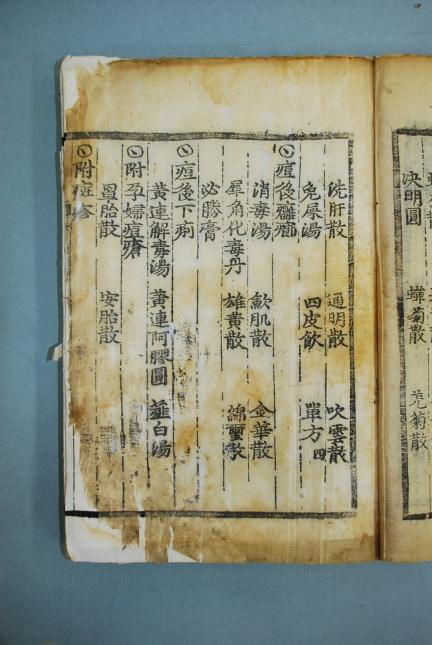 决明圓 蟬菊散 菊散
洗肝散 通明散 吹雲散
兔屎湯 四皮飮 單方四
痘後癰癤
消毒湯 歛肌散 金華散
犀角化毒丹 雄黃散 綿璽散
必勝膏
痘後下痢
黃連解毒湯 黃連阿膠圓 薤白湯
附孕婦痘瘡
罩胎散 安胎散
附斑疹